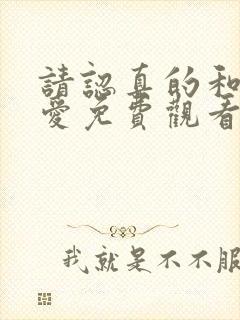 請認真的和
愛免費觀看
我就是不不服